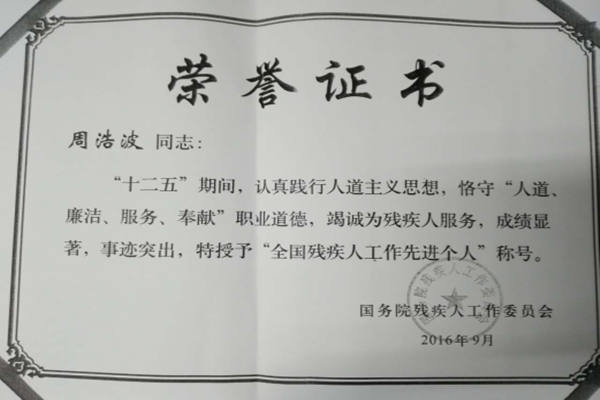 荣誉证书
周浩波 同志:
“十二五”期间,认真践行人道主义思想,恪守“人道、
廉洁、服务、奉献”职业道德,竭诚为残疾人服务,成绩显
著,事迹突出,特授予“全国残疾人工作先进个人”称号。
国务院残疾人工作委员会
国务院残疾人工作委员会
2016年9月